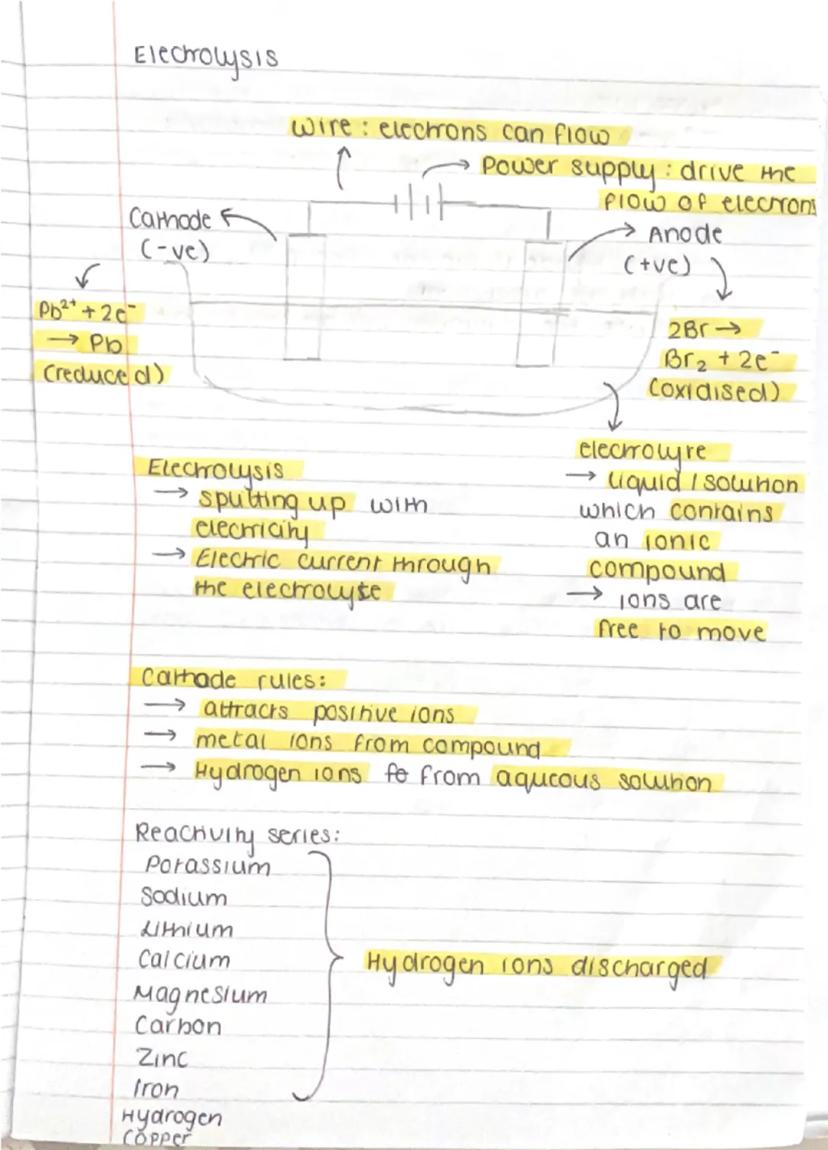 Electrolysis
wire : electrons can flow
power supply : drive the
flow of electrons
Cathode
(-ve)
Anode
(+ve)
Pb²⁺ + 2e⁻
→ Pb
(reduced)
2Br →
Br₂ + 2e⁻
(oxidised)
electrolyte
→ liquid / solution
which contains
an ionic
compound
→ ions are
free to move
Electrolysis
→ splitting up with
electricity
→ Electric current through
the electrolyte
Cathode rules:
→ attracts positive ions
→ metal ions from compound
→ Hydrogen ions fo from aqueous solution
Reactivity series:
Potassium
Sodium
Lithium
Calcium
Magnesium
Carbon
Zinc
Iron
Hydrogen
Copper
Hydrogen ions discharged